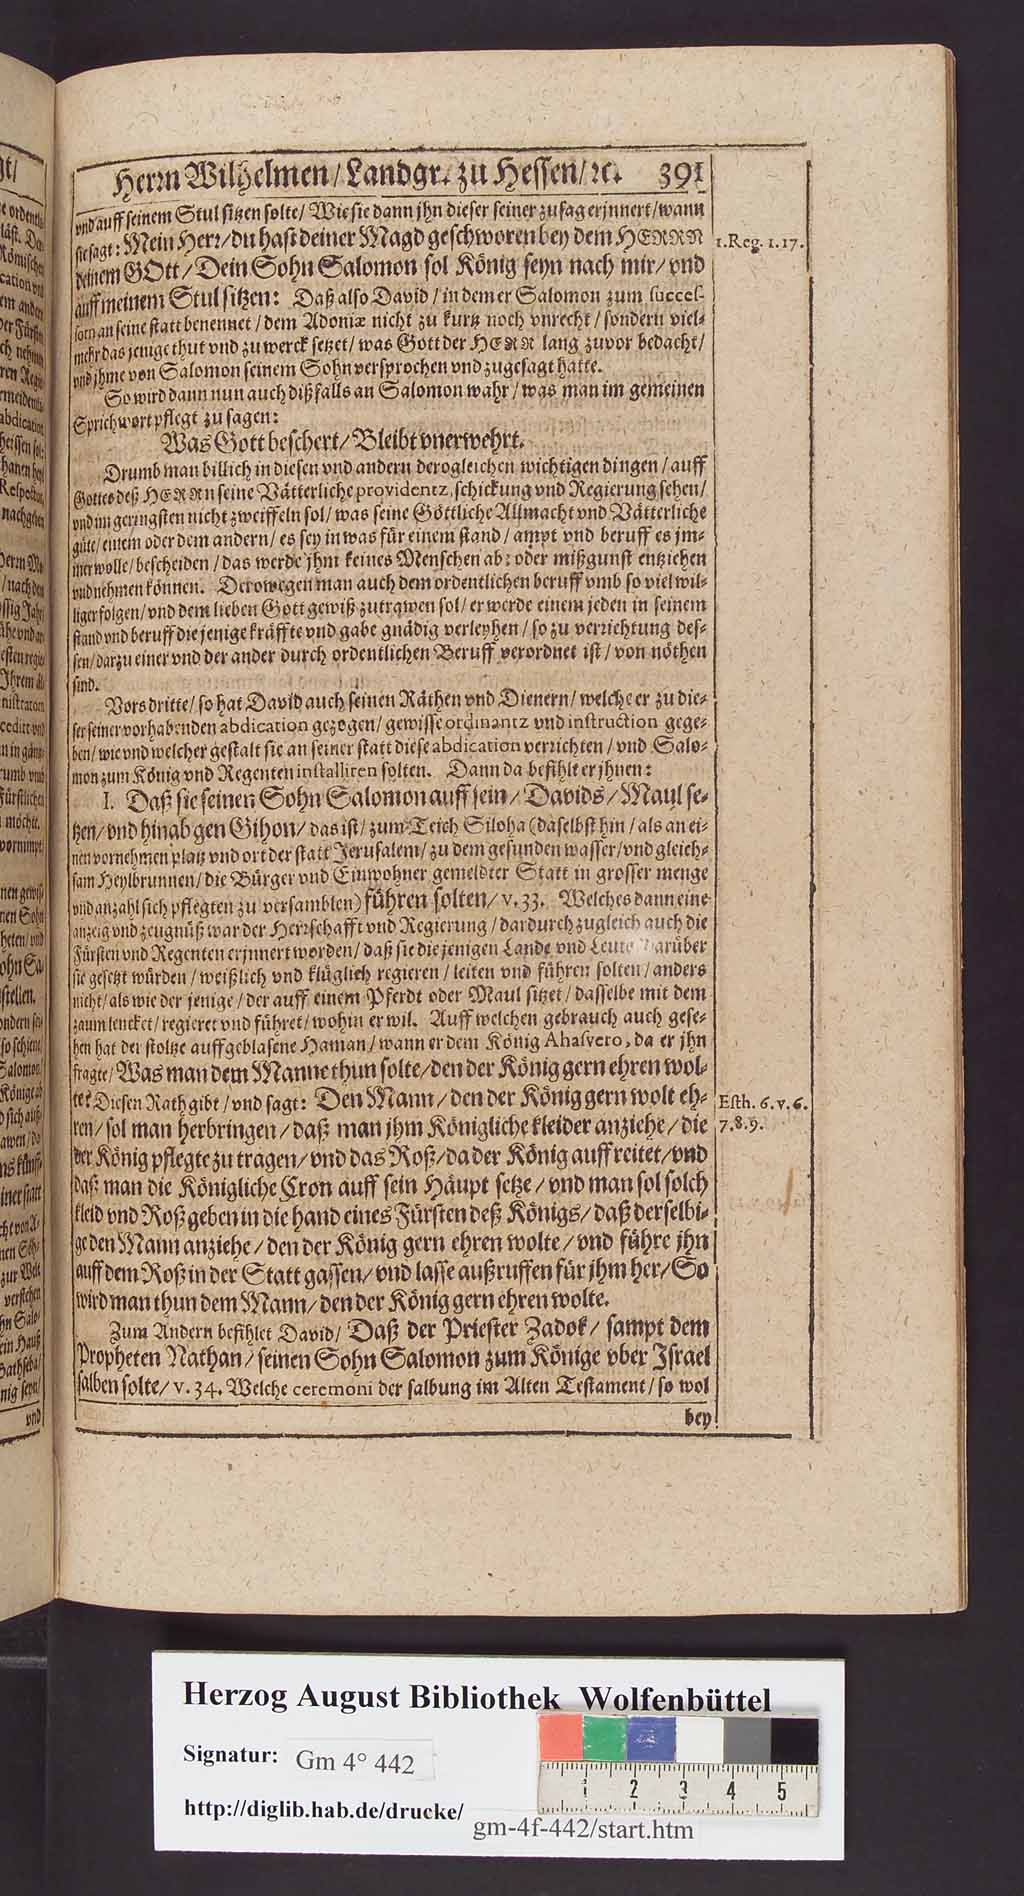 Herrn Wilhelmen/ Landgr. zu Hessen/ ꝛc. 391
vnd auff seinem Stul sitzen solte/ Wie sie dann jhn dieser seiner zusag erjnnert/ wann
sie sagt: Mein Herr/ du hast deiner Magd geschworen bey dem HERRN
1. Reg. 1. 17.
deinem GOtt/ Dein Sohn Salomon sol König seyn nach mir/ vnd
auff meinem Stul sitzen: Daß also David/ in dem er Salomon zum succes-
sorn an seine statt benennet/ dem Adoniæ nicht zu kurtz noch vnrecht/ sondern viel-
mehr das jenige thut vnd zu werck setzet/ was Gott der HERR lang zuvor bedacht/
vnd jhme von Salomon seinem Sohn versprochen vnd zugesagt hatte.
So wird dann nun auch dißfalls an Salomon wahr/ was man im gemeinen
Sprichwort pflegt zu sagen:
Was Gott beschert/ Bleibt vnerwehrt.
Drumb man billich in diesen vnd andern derogleichen wichtigen dingen/ auff
Gottes deß HERRN seine Vätterliche providentz, schickung vnd Regierung sehen/
vnd im geringsten nicht zweiffeln sol/ was seine Göttliche Allmacht vnd Vätterliche
güte/ einem oder dem andern/ es sey in was für einem stand/ ampt vnd beruff es jm-
mer wolle/ bescheiden/ das werde jhm keines Menschen ab: oder mißgunst entziehen
vnd nehmen können. Derowegen man auch dem ordentlichen beruff vmb so viel wil-
liger folgen/ vnd dem lieben Gott gewiß zutrawen sol/ er werde einem jeden in seinem
stand vnd beruff die jenige kräffte vnd gabe gnädig verleyhen/ so zu verrichtung des-
sen/ darzu einer vnd der ander durch ordentlichen Beruff verordnet ist/ von nöthen
sind.
Vors dritte/ so hat David auch seinen Räthen vnd Dienern/ welche er zu die-
ser seiner vorhabenden abdication gezogen/ gewisse ordinantz vnd instruction gege-
ben/ wie vnd welcher gestalt sie an seiner statt diese abdication verrichten/ vnd Salo-
mon zum König vnd Regenten installiren solten. Dann da befihlt er jhnen:
I. Daß sie seinen Sohn Salomon auff sein/ Davids/ Maul se-
tzen/ vnd hinab gen Gihon/ das ist/ zum Teich Siloha (daselbst hin/ als an ei-
nen vornehmen platz vnd ort der statt Jerusalem/ zu dem gesunden wasser/ vnd gleich-
sam Heylbrunnen/ die Bürger vnd Einwohner gemeldter Statt in grosser menge
vnd anzahl sich pflegten zu versamblen) führen solten/ v. 33. Welches dann eine
anzeig vnd zeugnüß war der Herrschafft vnd Regierung/ dardurch zugleich auch die
Fürsten vnd Regenten erjnnert worden/ daß sie die jenigen Lande vnd Leute darüber
sie gesetzt würden/ weißlich vnd klüglich regieren/ leiten vnd führen solten/ anders
nicht/ als wie der jenige/ der auff einem Pferdt oder Maul sitzet/ dasselbe mit dem
zaum lencket/ regieret vnd führet/ wohin er wil. Auff welchen gebrauch auch gese-
hen hat der stoltze auffgeblasene Haman/ wann er dem König Ahasvero, da er jhn
fragte/ Was man dem Manne thun solte/ den der König gern ehren wol-
te? Diesen Rath gibt/ vnd sagt: Den Mann/ den der König gern wolt eh-
Esth. 6. v. 6.
ren/ sol man herbringen/ daß man jhm Königliche kleider anziehe/ die
7. 8. 9.
der König pflegte zu tragen/ vnd das Roß/ da der König auff reitet/ vnd
daß man die Königliche Cron auff sein Häupt setze/ vnd man sol solch
kleid vnd Roß geben in die hand eines Fürsten deß Königs/ daß derselbi-
ge den Mann anziehe/ den der König gern ehren wolte/ vnd führe jhn
auff dem Roß in der Statt gassen/ vnd lasse außruffen für jhm her/ So
wird man thun dem Mann/ den der König gern ehren wolte.
Zum Andern befihlet David/ Daß der Priester Zadok/ sampt dem
Propheten Nathan/ seinen Sohn Salomon zum Könige vber Israel
salben solte/ v. 34. Welche ceremoni der salbung im Alten Testament/ so wol
bey
Herzog August Bibliothek Wolfenbüttel
Signatur: Gm 4° 442
1 2 3 4 5
http://diglib.hab.de/drucke/ gm-4f-442/start.htm